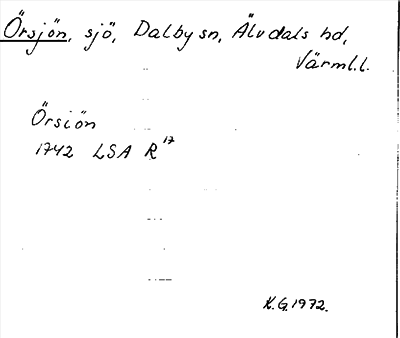 Örsjön, sjö, Dalby sn, Älvdals hd,
Värml.l.
Örsiön
1742 LSA R 17
K.G.1972.